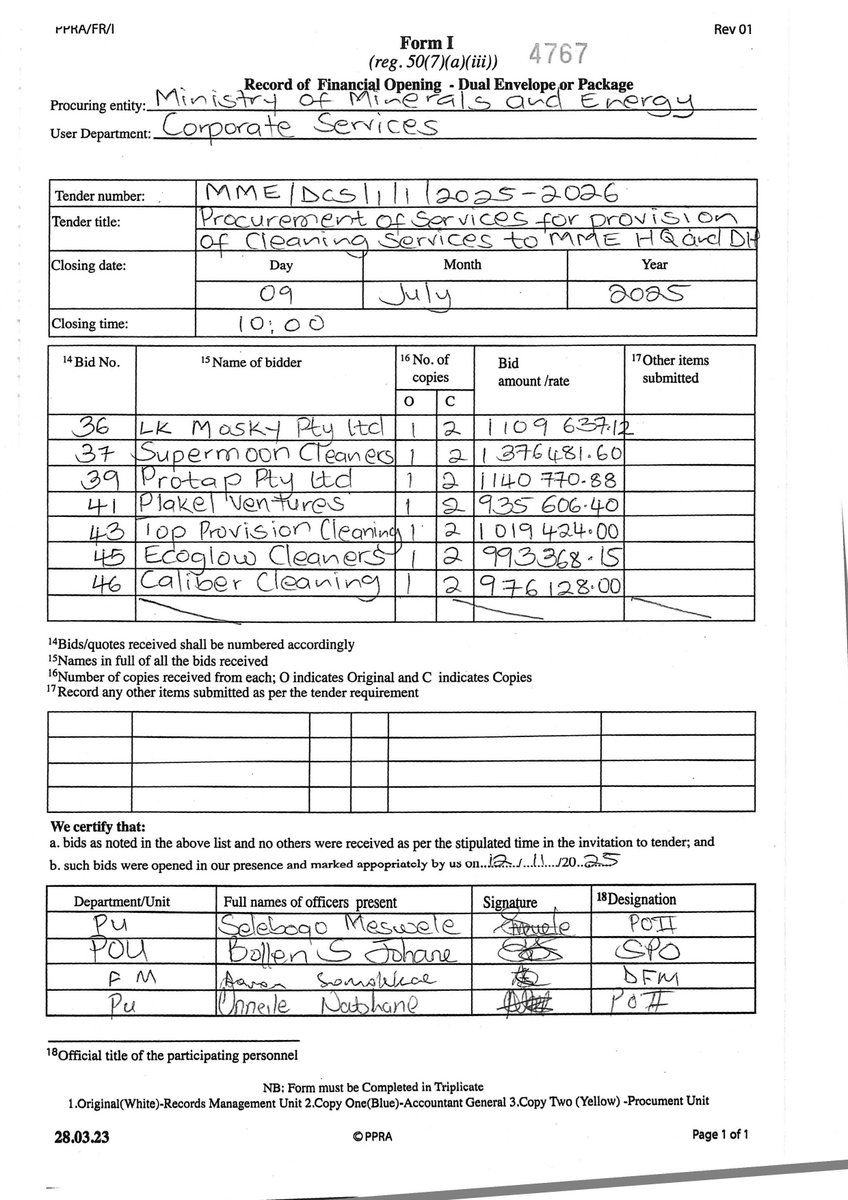 PPRA/FR/I
Rev 01
Form I
(reg. 50(7)(a)(iii))
4767
Record of Financial Opening - Dual Envelope or Package
Procuring entity: Ministry of Minerals and Energy
User Department: Corporate Services
Tender number: MME/DCS/1/1/2025-2026
Tender title: Procurement of Services for provision
of Cleaning Services to MME HQ and DH
Closing date: Day Month Year
09 July 2025
Closing time: 10:00
14 Bid No. 15 Name of bidder 16 No. of copies Bid amount /rate 17 Other items submitted
O C
36 LK Masky Pty Ltd 1 2 1 109 637.12
37 Supermoon Cleaners 1 2 1 376 481.60
39 Protap Pty Ltd 1 2 1140 770.88
41 Plakel Ventures 1 2 935 606.40
43 Top Provision Cleaning 1 2 1 019 424.00
45 Ecoglow Cleaners 1 2 993 368.15
46 Caliber Cleaning 1 2 976 128.00
14 Bids/quotes received shall be numbered accordingly
15 Names in full of all the bids received
16 Number of copies received from each; O indicates Original and C indicates Copies
17 Record any other items submitted as per the tender requirement
We certify that:
a. bids as noted in the above list and no others were received as per the stipulated time in the invitation to tender; and
b. such bids were opened in our presence and marked appopriately by us on..12../..11.../20..25
Department/Unit Full names of officers present Signature 18 Designation
PU Selebogo Meswele POII
POU Bollen S Johane SPO
FM DFM
PU POII
18 Official title of the participating personnel
NB: Form must be Completed in Triplicate
1.Original(White)-Records Management Unit 2.Copy One(Blue)-Accountant General 3.Copy Two (Yellow) -Procument Unit
28.03.23
©PPRA
Page 1 of 1